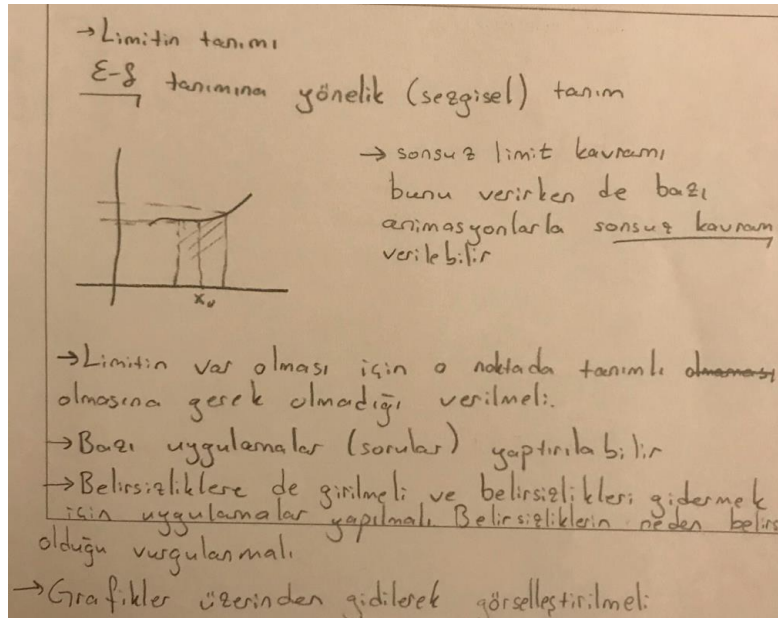 →Limitin tanımı
ε-δ tanımına yönelik (sezgisel) tanım
→ sonsuz limit kavramı
bunu verirken de bazı
animasyonlarla sonsuz kavram
verilebilir
x₀
→Limitin var olması için o noktada tanımlı olmaması
olmasına gerek olmadığı verilmeli.
→Bazı uygulamalar (sorular) yaptırılabilir
→Belirsizliklere de girilmeli ve belirsizlikleri gidermek
için uygulamalar yapılmalı. Belirsizliklerin neden belirs
olduğu vurgulanmalı
→Grafikler üzerinden gidilerek görselleştirilmeli